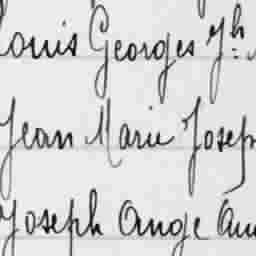 Louis Georges Jh
Jean Marie Joseph
Joseph Ange